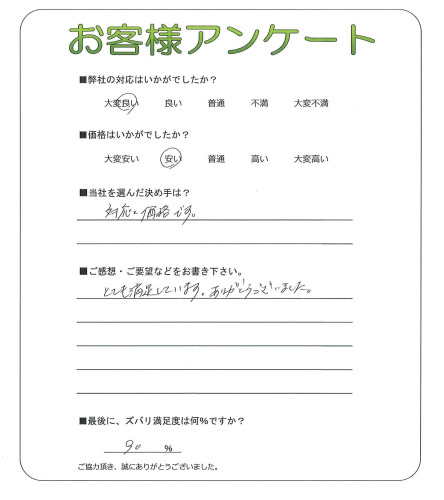 お客様アンケート
■弊社の対応はいかがでしたか？
大変良い 良い 普通 不満 大変不満
■価格はいかがでしたか？
大変安い 安い 普通 高い 大変高い
■当社を選んだ決め手は？
対応と価格です。
■ご感想・ご要望などをお書き下さい。
とても満足しています。ありがとうございました。
■最後に、ズバリ満足度は何%ですか？
90 %
ご協力頂き、誠にありがとうございました。